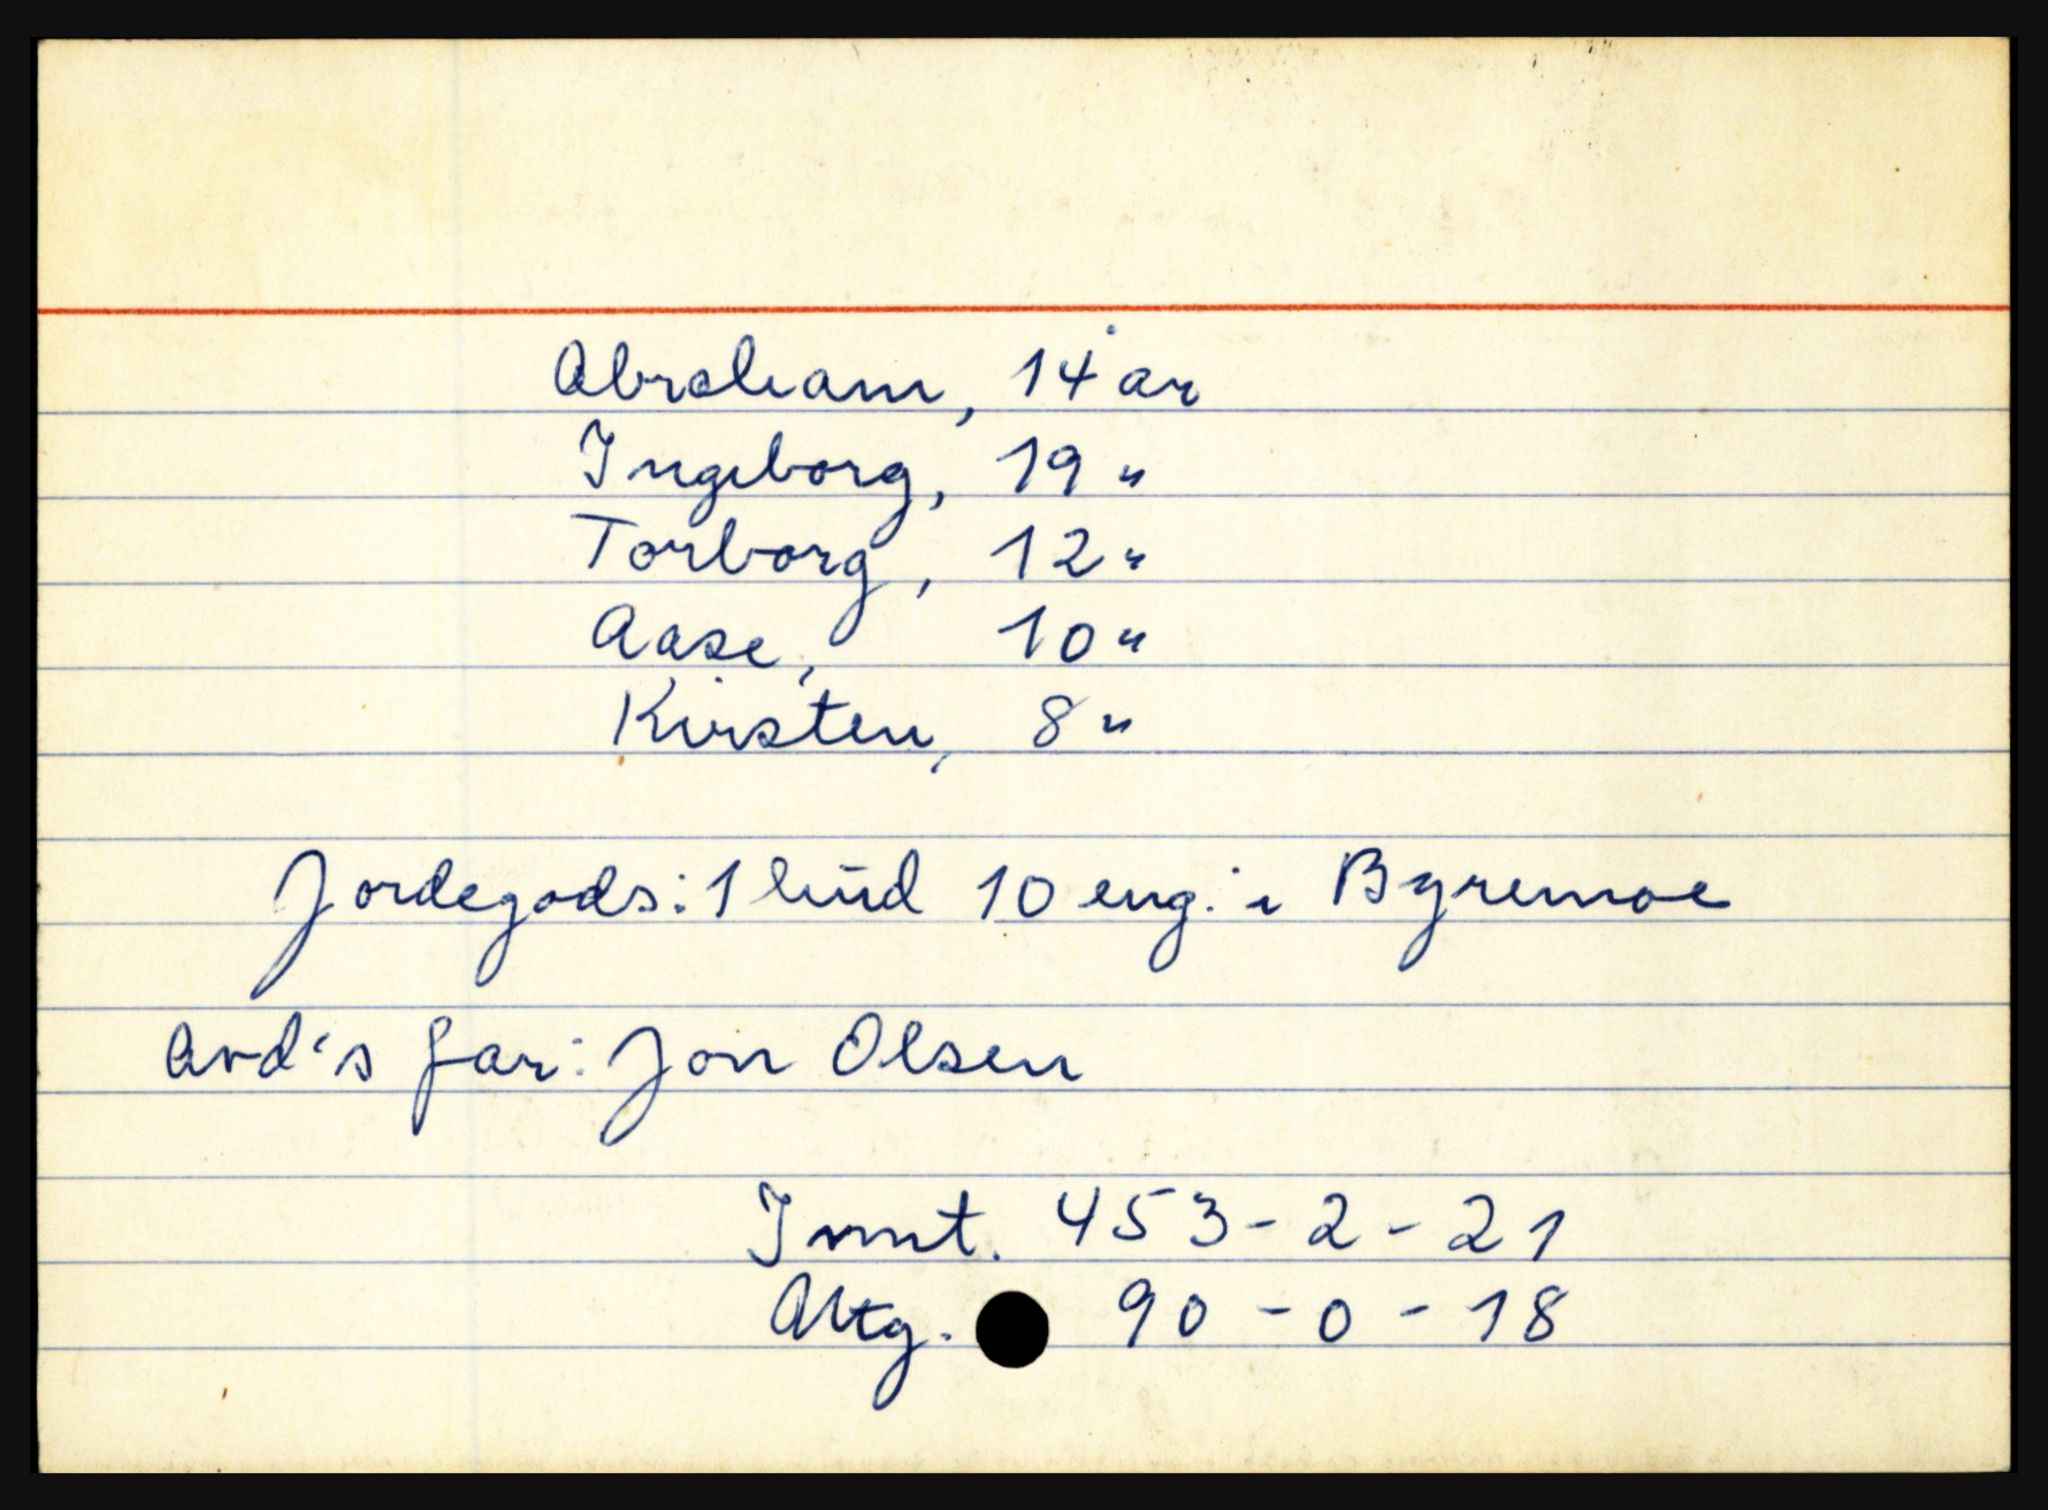 Abraham, 14 år
Ingeborg, 19 "
Torborg, 12 "
Aase, 10 "
Kirsten, 8 "
Jordegods: 1 hud 10 eng. i Byremoe
Avd's far: Jon Olsen
Innt. 453 - 2 - 21
Utg. 90 - 0 - 18